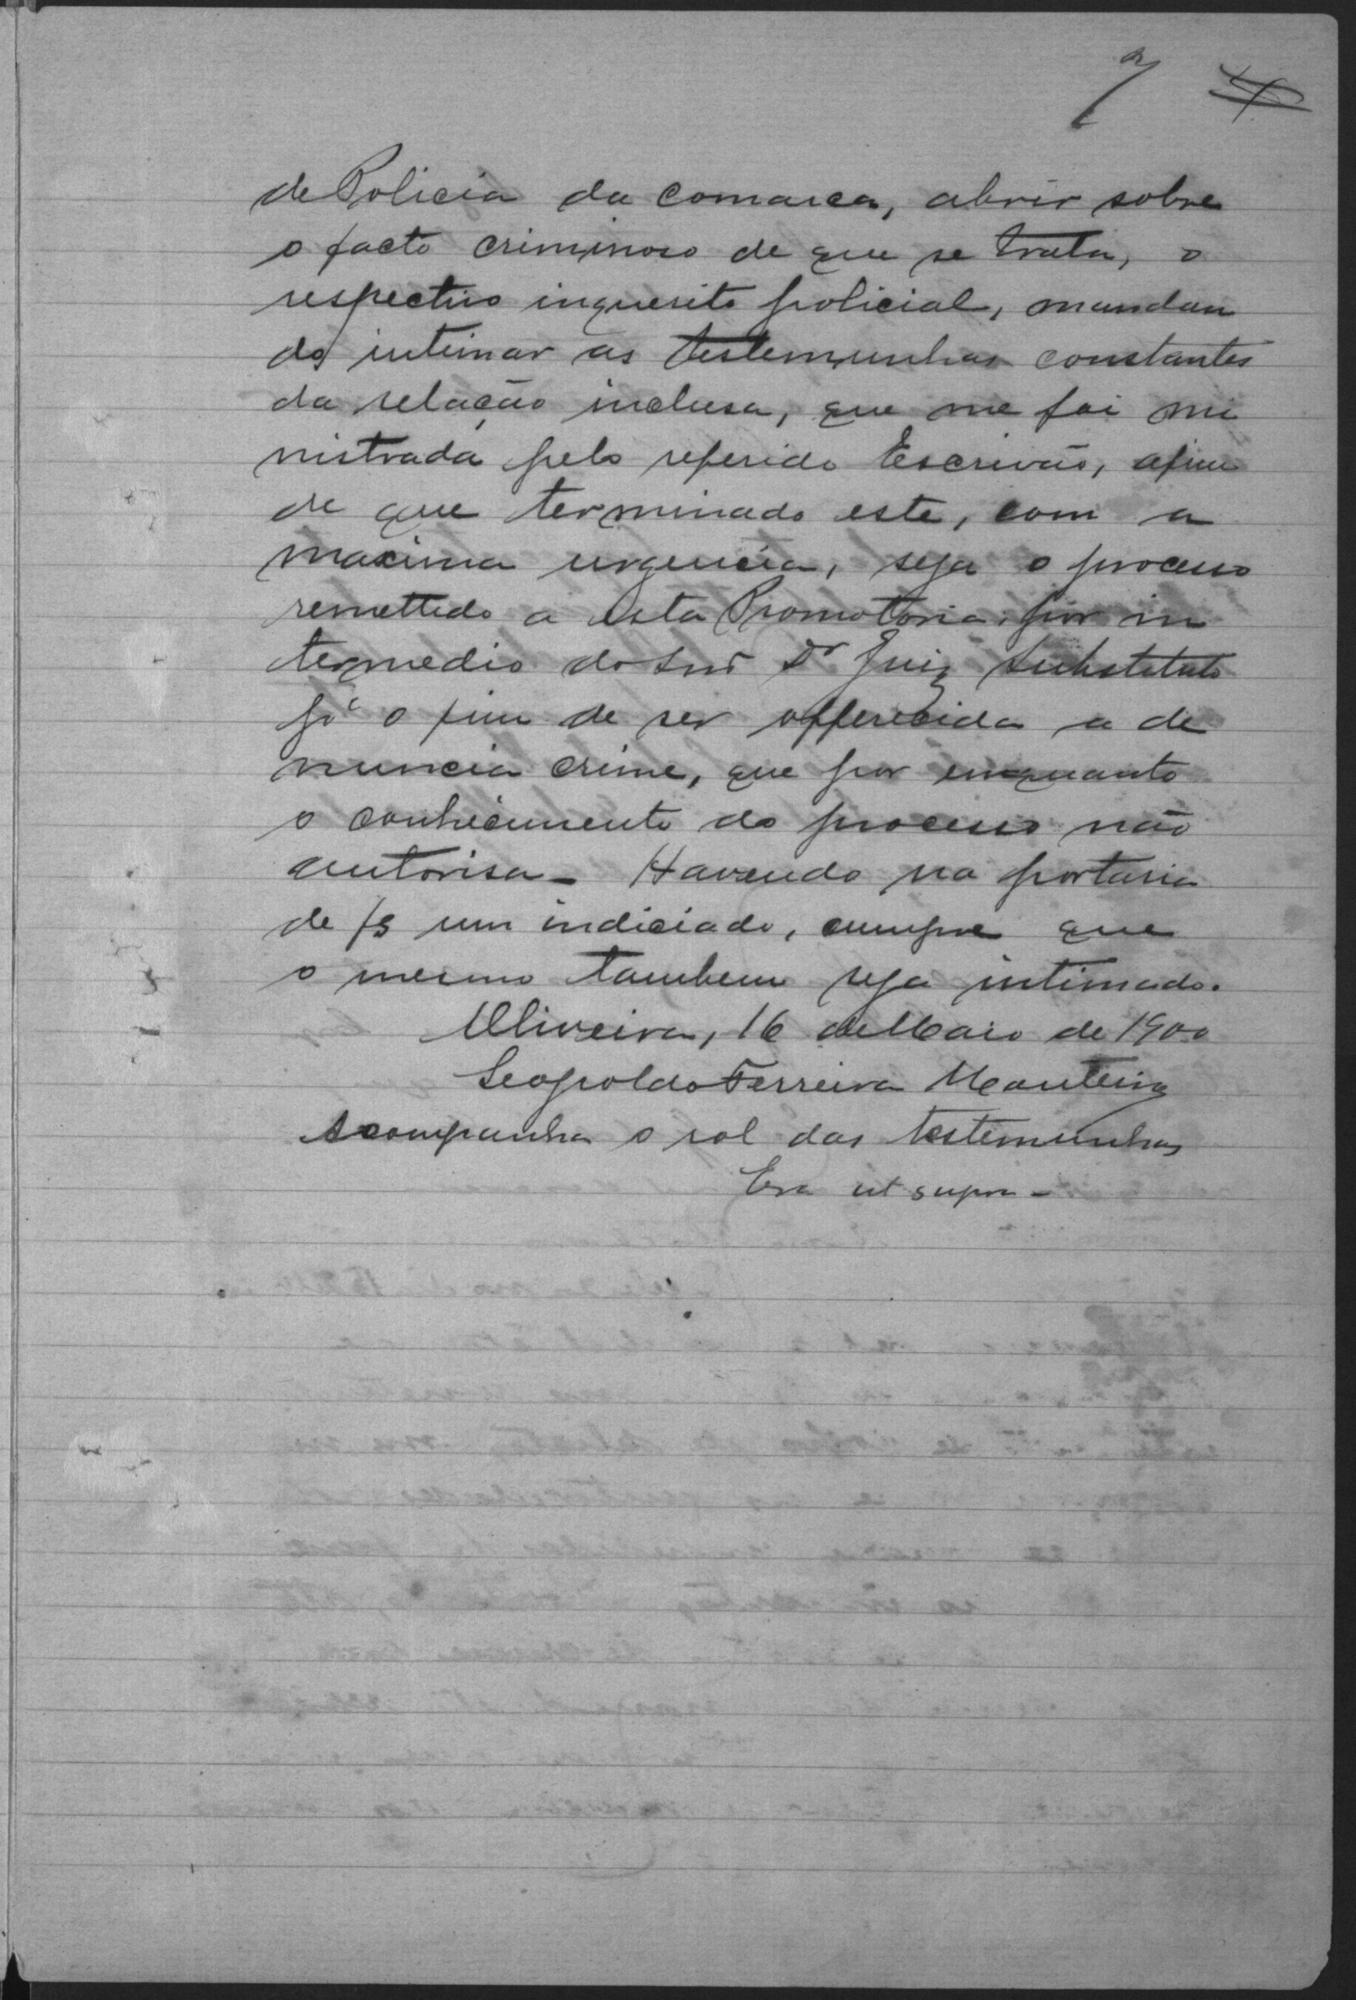 7
de Policia da comarca, abrir sobre
o facto criminoso de que se trata, o
respectivo inquerito policial, mandan
do intimar as testemunhas constantes
da relação inclusa, que me foi mi
nistrada pelo referido Escrivão, afim
de que terminado este, com a
maxima urgencia, seja o processo
remettido a esta Promotoria por in
termedio do Snr Dr Juiz substituto
pª o fim de ser offerecida a de
nuncia crime, que por emquanto
o conhecimento do processo não
autorisa - Havendo na portaria
de fs um indiciado, cumpre que
o mesmo tambem seja intimado.
Oliveira, 16 de Maio de 1900
Leopoldo Ferreira Monteiro
Acompanha o rol das testemunhas
Era ut supra -